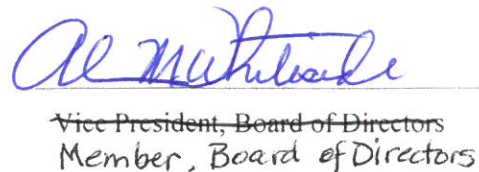 Al
Vice President, Board of Directors
Member, Board of Directors